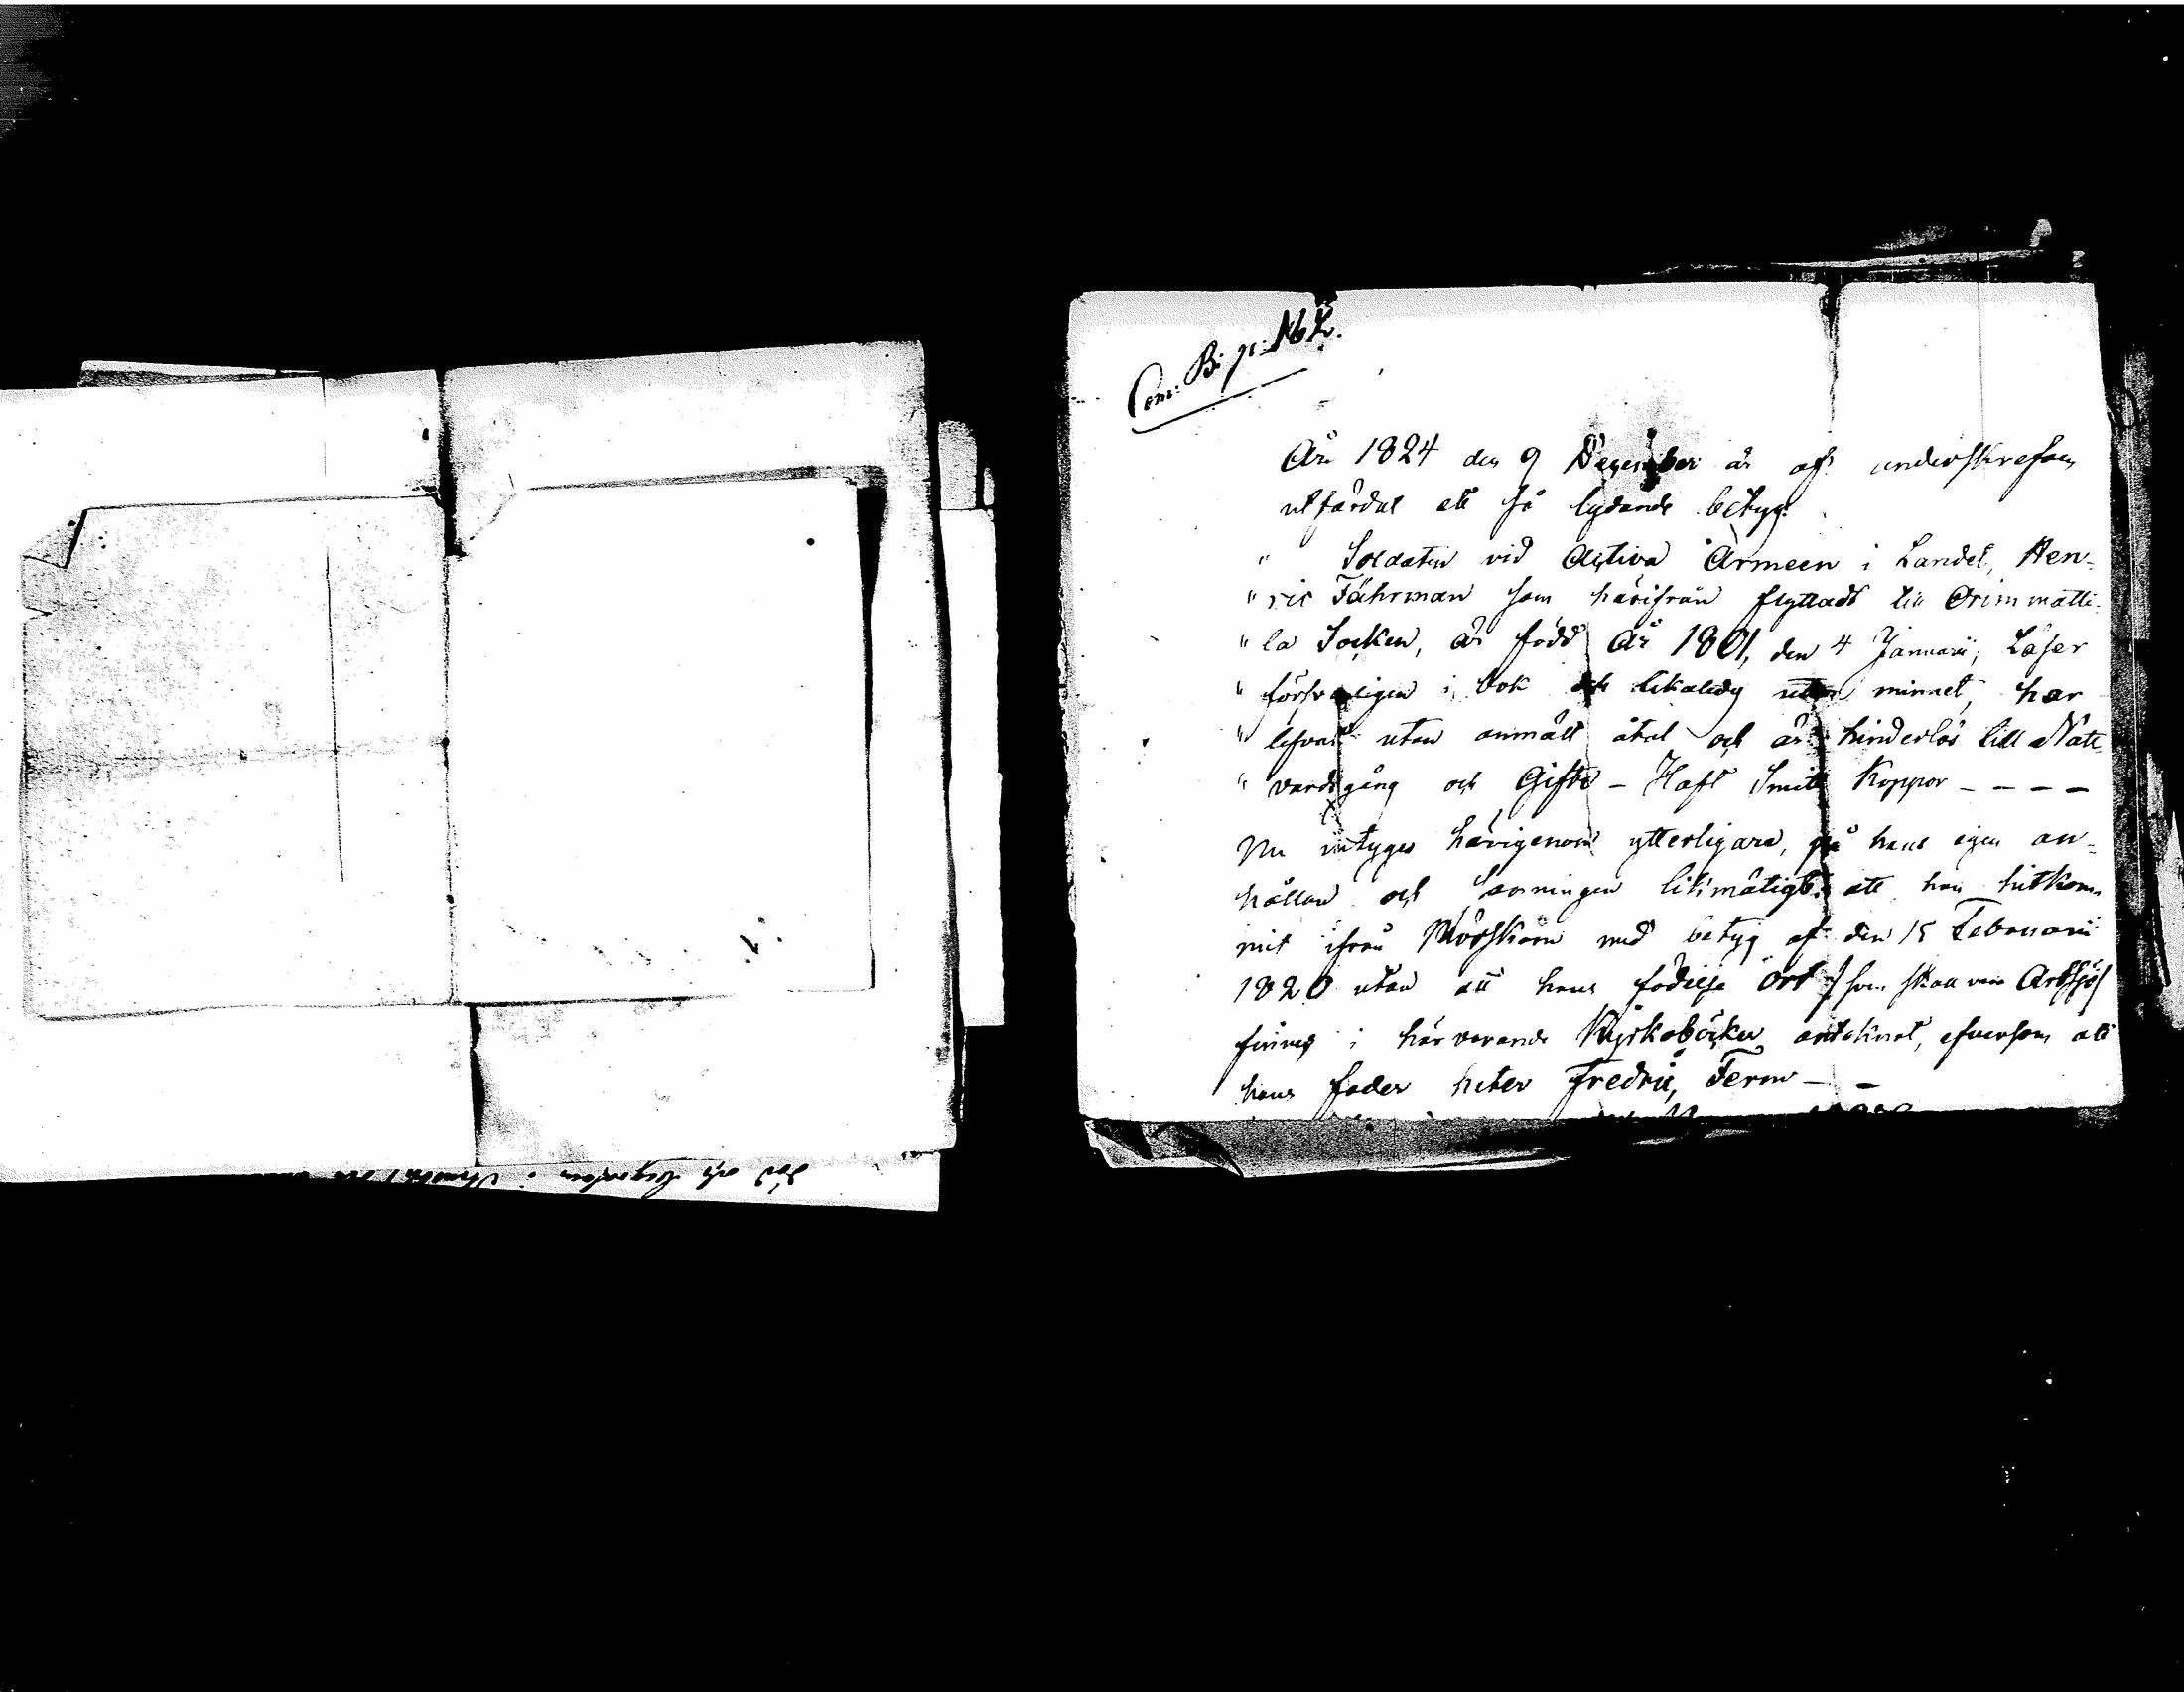 Com: B: p: 162.
År 1824 den 9 December är af underskrefven
utfärdat ett så lydande betyg:
" Soldaten vid Activa Armeen i Landet, Hen-
" ric Fährman som härifrån flyttadt till Orimmatti-
" la Socken, är född År 1801, den 4 Januarii; Läser
" försvarligen i bok och likaledes utan minnet, har
" lefvat utan anmält åtal och är hinderlös till Natt-
" vardsgång och Gifte - Haft Smitt Koppor - - - -
Nu intyges härigenom ytterligare, på hans egen an-
hållan och sanningen likmätigt: att han hitkom-
mit ifrån Mörskom med betyg af den 15 Februarii
1820 utan att hans födelse ort / som skall vara Artsjö /
finnes i härvarande Kyrkoböcker antecknat, efversom att
hans fader heter Fredric Ferm - -
död och begrafven i